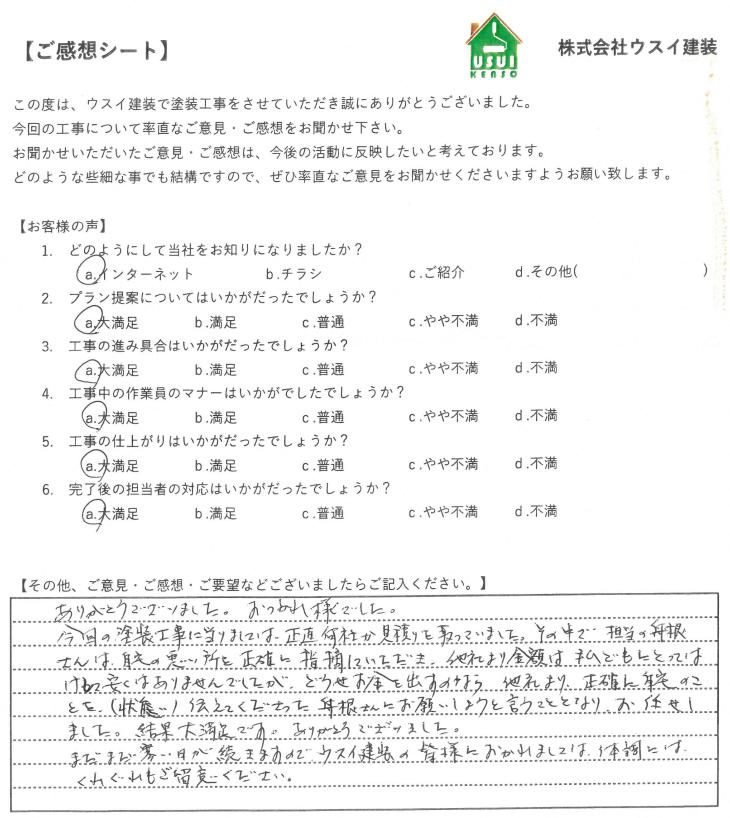 【ご感想シート】
USUI
KENSO
株式会社ウスイ建装
この度は、ウスイ建装で塗装工事をさせていただき誠にありがとうございました。
今回の工事について率直なご意見・ご感想をお聞かせ下さい。
お聞かせいただいたご意見・ご感想は、今後の活動に反映したいと考えております。
どのような些細な事でも結構ですので、ぜひ率直なご意見をお聞かせくださいますようお願い致します。
【お客様の声】
1. どのようにして当社をお知りになりましたか？
a.インターネット b.チラシ c.ご紹介 d.その他( )
2. プラン提案についてはいかがだったでしょうか？
a.大満足 b.満足 c.普通 c.やや不満 d.不満
3. 工事の進み具合はいかがだったでしょうか？
a.大満足 b.満足 c.普通 c.やや不満 d.不満
4. 工事中の作業員のマナーはいかがでしたでしょうか？
a.大満足 b.満足 c.普通 c.やや不満 d.不満
5. 工事の仕上がりはいかがだったでしょうか？
a.大満足 b.満足 c.普通 c.やや不満 d.不満
6. 完了後の担当者の対応はいかがだったでしょうか？
a.大満足 b.満足 c.普通 c.やや不満 d.不満
【その他、ご意見・ご感想・ご要望などございましたらご記入ください。】
ありがとうございました。おつかれ様でした。
今回の塗装工事に当りましては、正直何社か見積りを取っていました。その中で担当の舟根
さんは、自宅の悪い所を正確に指摘していただき、他社より金額は私どもにとっては
けして安くはありませんでしたが、どうせお金を出すのなら、他社より、正確に自宅のこ
とを、(状態)伝えてくださった舟根さんにお願いしようと言うこととなり、お任せし
ました。結果大満足です。ありがとうございました。
まだまだ寒い日が続きますのでウスイ建装の皆様におかれましては、体調には
くれぐれもご留意ください。